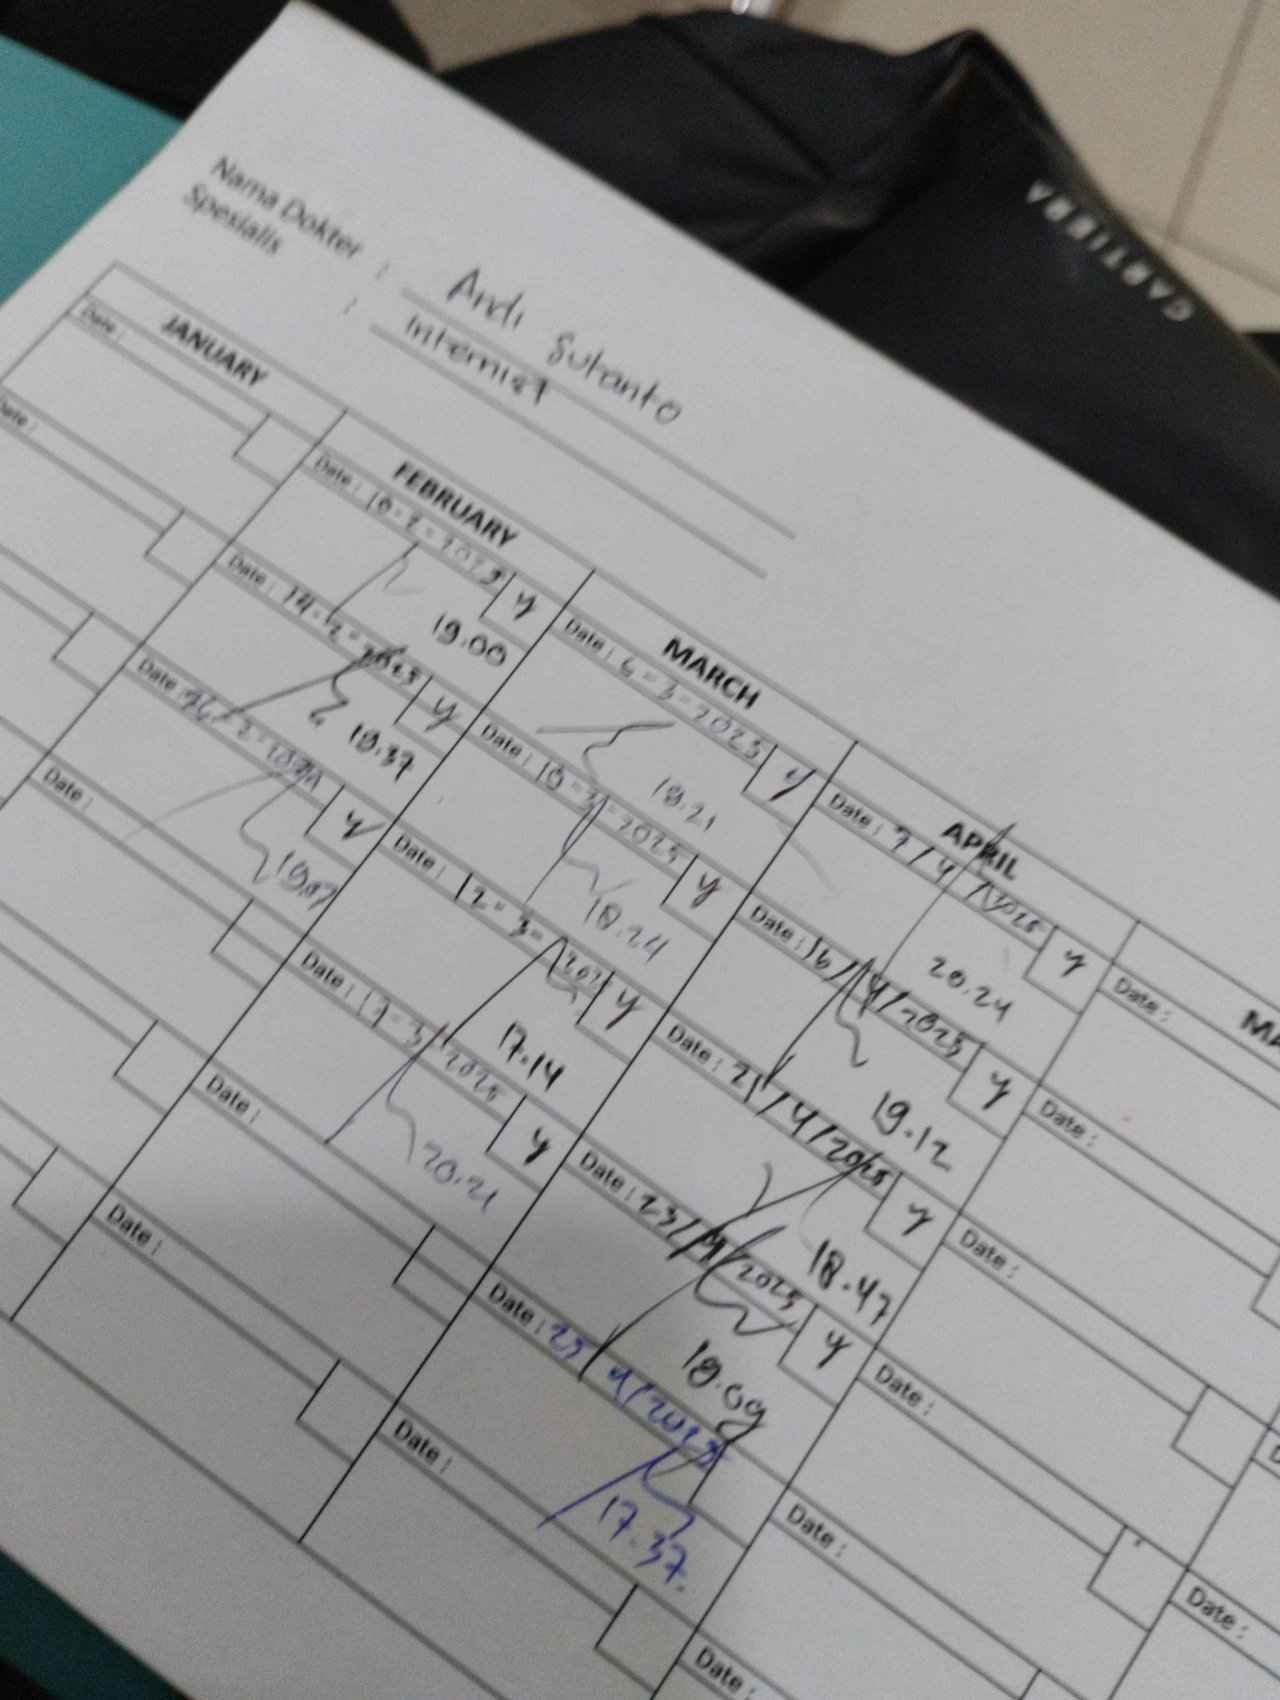 CARTIERA
Nama Dokter : Andi Sutanto
Spesialis : Internist
JANUARY
Date :
Date :
FEBRUARY
Date : 10-2-2025 y
19.00
Date : 14-2-2025 y
19.37
Date : y
19.07
Date :
Date :
MARCH
Date : 6-3-2025 y
18.21
Date : 10-3-2025 y
18.24
Date : 12-3-2025 y
17.14
Date : 17-3-2025 y
20.21
Date :
Date :
APRIL
Date : 7/4/2025 y
20.24
Date : 16/4/2025 y
19.12
Date : 21/4/2025 y
18.47
Date : 23/4/2025 y
18.09
Date : 25/4/2025
17.37
Date :
Date :
Date :
Date :
Date :
Date :
Date :
Date :